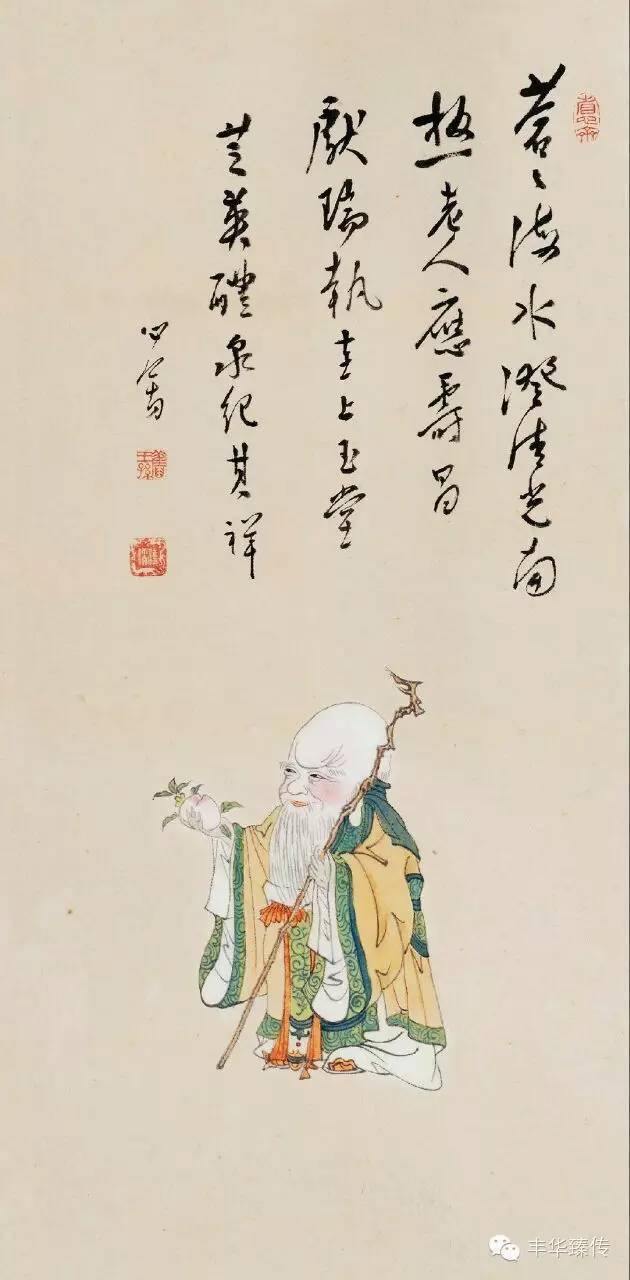 蒼々海水澄清光南
極老人應壽昌
獻瑞執圭上玉堂
芝英醴泉紀其祥
心畬
舊王孫
丰华臻传